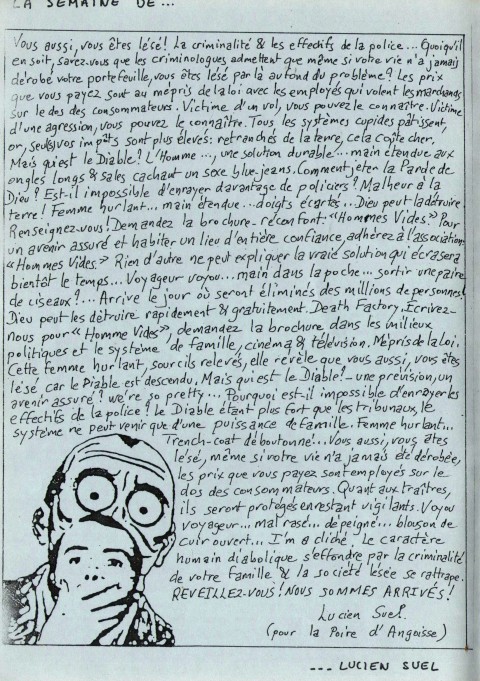 LA SEMAINE DE...
Vous aussi, vous êtes lésé! La criminalité & les effectifs de la police... Quoiqu'il
en soit, savez-vous que les criminologues admettent que même si votre vie n'a jamais
dérobé votre portefeuille, vous êtes lésé par là au fond du problème? Les prix
que vous payez sont au mépris de la loi avec les employés qui volent les marchands
sur le dos des consommateurs. Victime d'un vol, vous pouvez le connaître. Victime
d'une agression, vous pouvez le connaître. Tous les systèmes cupides pâtissent,
or, seul(s) vos impôts sont plus élevés: retranchés de la terre, cela coûte cher.
Mais qui est le Diable? L'Homme..., une solution durable... main étendue aux
ongles longs & sales cachant un sexe blue-jeans. Comment jeter la Parole de
Dieu? Est-il impossible d'enrayer davantage de policiers? Malheur à la
terre! Femme hurlant... main étendue... doigts écartés... Dieu peut la détruire.
Renseignez-vous! Demandez la brochure-réconfort: «Hommes Vides» Pour
un avenir assuré et habiter un lieu d'entière confiance, adhérez à l'association:
«Hommes Vides.» Rien d'autre ne peut expliquer la vraie solution qui écrasera
bientôt le temps... Voyageur voyou... main dans la poche... sortir une paire
de ciseaux?... Arrive le jour où seront éliminés des millions de personnes!
Dieu peut les détruire rapidement & gratuitement. Death Factory. Ecrivez-
nous pour «Homme Vides», demandez la brochure dans les milieux
politiques et le système de famille, cinéma & télévision. Mépris de la loi.
Cette femme hurlant, sourcils relevés, elle revèle que vous aussi, vous êtes
lésé car le Diable est descendu, Mais qui est le Diable? - une prévision, un
avenir assuré? we're so pretty... Pourquoi est-il impossible d'enrayer les
effectifs de la police? Le Diable étant plus fort que les tribunaux, le
système ne peut venir que d'une puissance de famille. Femme hurlant...
Trench-coat déboutonné!.. Vous aussi, vous êtes
lésé, même si votre vie n'a jamais été dérobée,
les prix que vous payez sont employés sur le
dos des consommateurs. Quant aux traîtres,
ils seront protégés en restant vigilants. Voyou
voyageur... mal rasé... dépeigné... blouson de
cuir ouvert... I'm a cliché. Le caractère
humain diabolique s'effondre par la criminalité
de votre famille & la société lésée se rattrape.
REVEILLEZ-VOUS! NOUS SOMMES ARRIVÉS!
Lucien Suel.
(pour la Poire d'Angoisse)
--- LUCIEN SUEL